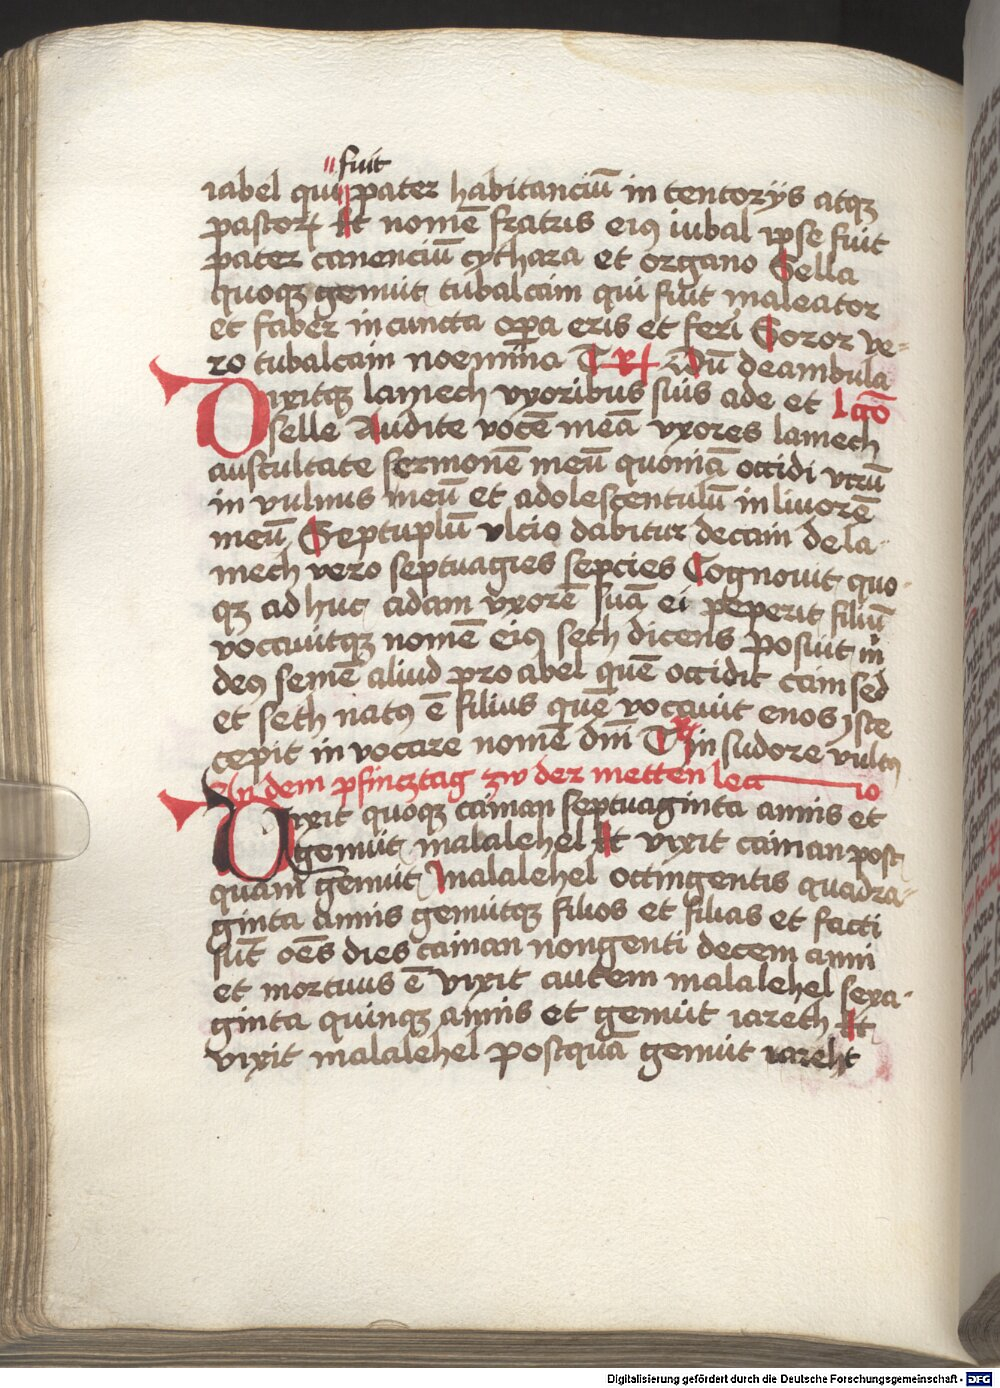 fuit
iabel qui pater habitanciū in tentorijs atqꝫ
pastorꝝ Et nomē fratris eiꝰ iubal ipse fuit
pater canenciū cythara et organo Sella
quoqꝫ genuit tubalcain qui fuit maleator
et faber in cuncta oꝑa eris et feri Soror ve-
ro tubalcain noemina Dū deambula
Dixitqꝫ lamech vxoribus suis ade et lcꝰ
selle Audite vocē meā vxores lamech
auscultate sermonē meū quoniā occidi virū
in vulnus meū et adolescentulū in liuorē
meū Septuplū vlcio dabitur de cain de la-
mech vero septuagies sepcies Cognouit quo-
qꝫ adhuc adam vxorē suā ei peperit filiū
vocauitqꝫ nomē eiꝰ seth dicens posuit m
deꝰ semē aliud pro abel quē occidit cain sed
et seth natꝰ ē filius quē vocauit enos iste
cepit in vocare nomē dnī in sudore vultꝰ
An dem pfincztag zw der metten lea 10
Vixit quoqꝫ cainan septuaginta annis et
genuit malalehel Et vixit cainan post-
quam genuit malalehel octingentis quadra-
ginta annis genuitqꝫ filios et filias et facti
sūt oēs dies cainan nongenti decem anni
et mortuus ē vixit autem malalehel sexa-
ginta quinqꝫ annis et genuit iareth Et
vixit malalehel postquā genuit iareht
Digitalisierung gefördert durch die Deutsche Forschungsgemeinschaft - DFG